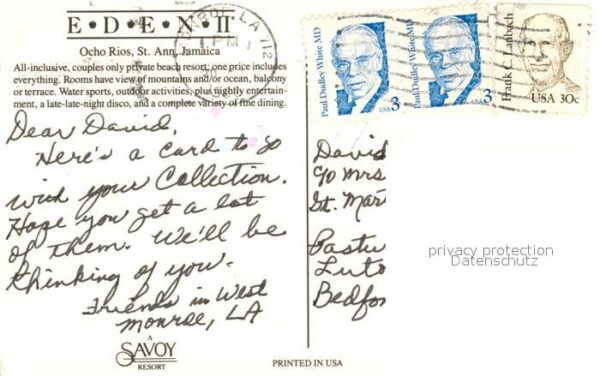 E • D • E • N • II
Ocho Rios, St. Ann, Jamaica
All-inclusive, couples only private beach resort; one price includes
everything. Rooms have view of mountains and/or ocean, balcony
or terrace. Water sports, outdoor activities, plus nightly entertain-
ment, a late-late-night disco, and a complete variety of fine dining.
LA 712
PM
Paul Dudley White MD
USA 3
Paul Dudley White MD
USA 3
Frank C. Laubach
USA 30c
Dear David,
Here's a card to go
with your Collection.
Hope you get a lot
of them. We'll be
thinking of you.
Friends in West
Monroe, LA
David
c/o Mrs
St. Mart
Pastu
Luto
Bedfor
privacy protection
Datenschutz
A
SAVOY
RESORT
PRINTED IN USA